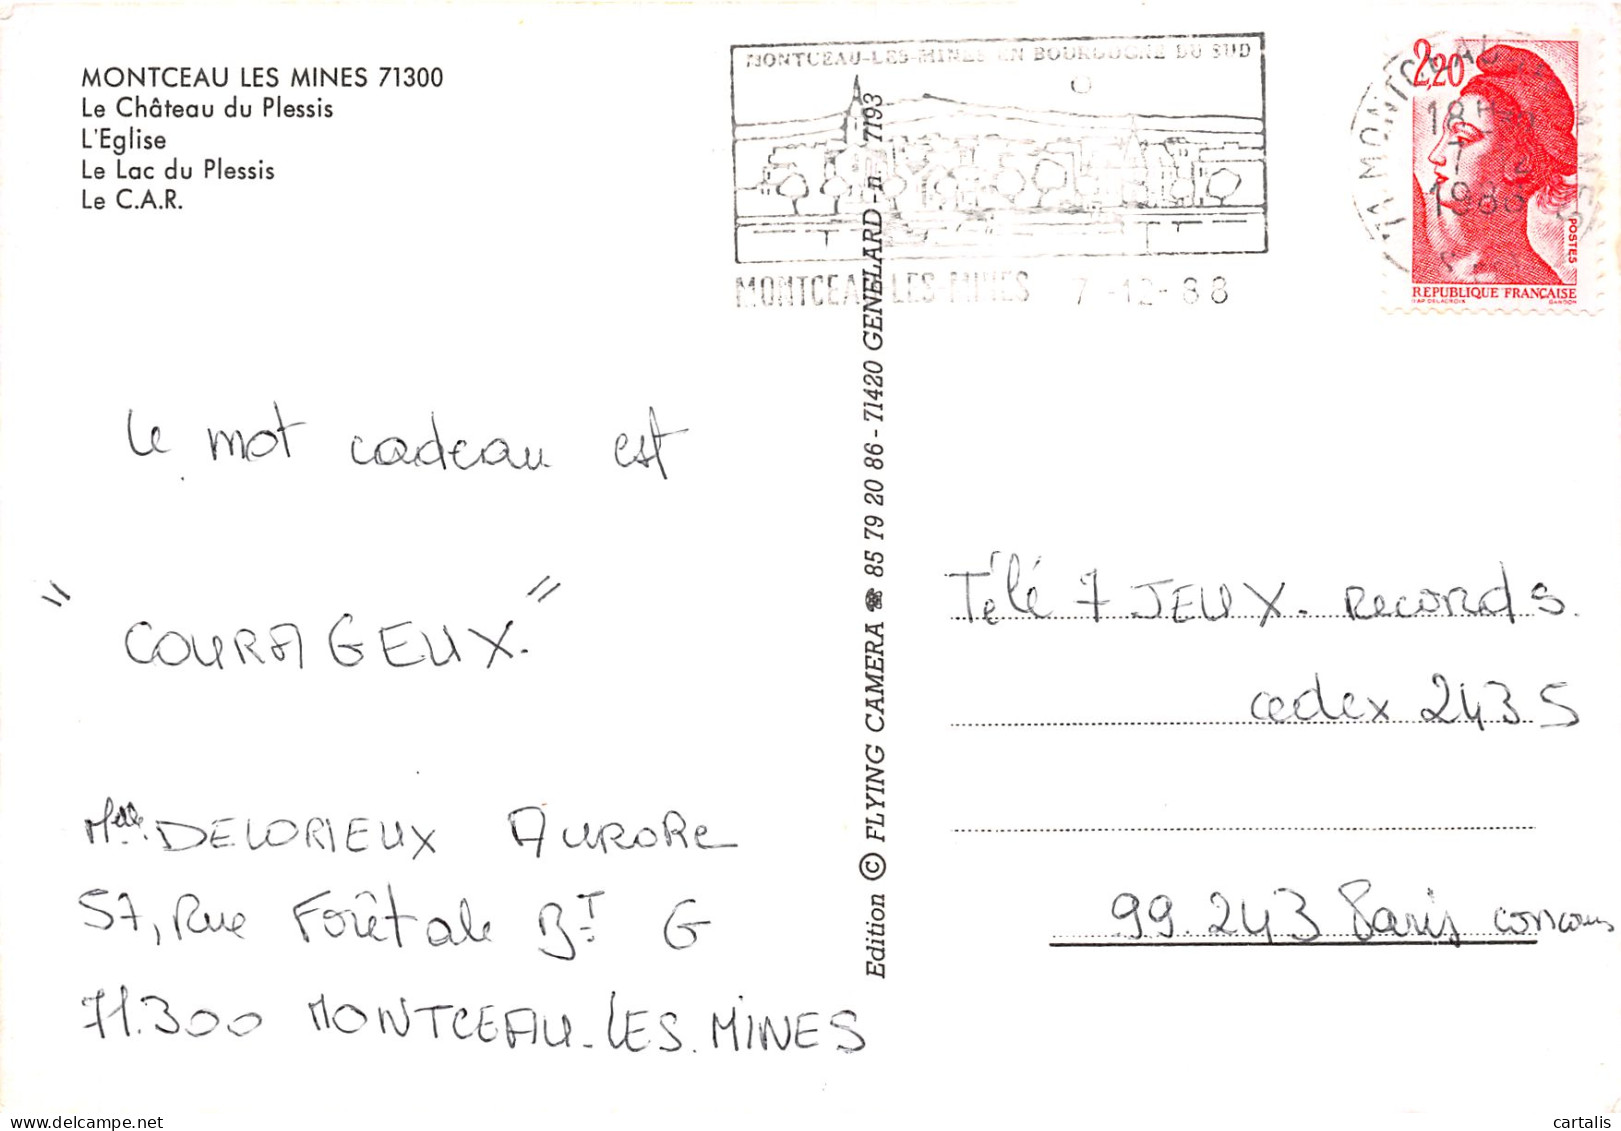 MONTCEAU LES MINES 71300
Le Château du Plessis
L'Eglise
Le Lac du Plessis
Le C.A.R.
MONTCEAU-LES-MINES EN BOURGOGNE DU SUD
MONTCEAU LES MINES 7-12-88
71 MONTCEAU
18H
7
198
2,20
POSTES
REPUBLIQUE FRANÇAISE
DAP. DELACROIX GANDON
Le mot cadeau est
"COURAGEUX."
Melle. DELORIEUX AURORE
57, Rue Forêtale BT. G
71.300 MONTCEAU-LES.MINES
Edition © FLYING CAMERA ☎ 85 79 20 86 - 71420 GENELARD - n° 7193
Télé 7 JEUX. Records.
cedex 2435
99.243 Paris concours
cartalis
delcampe.net